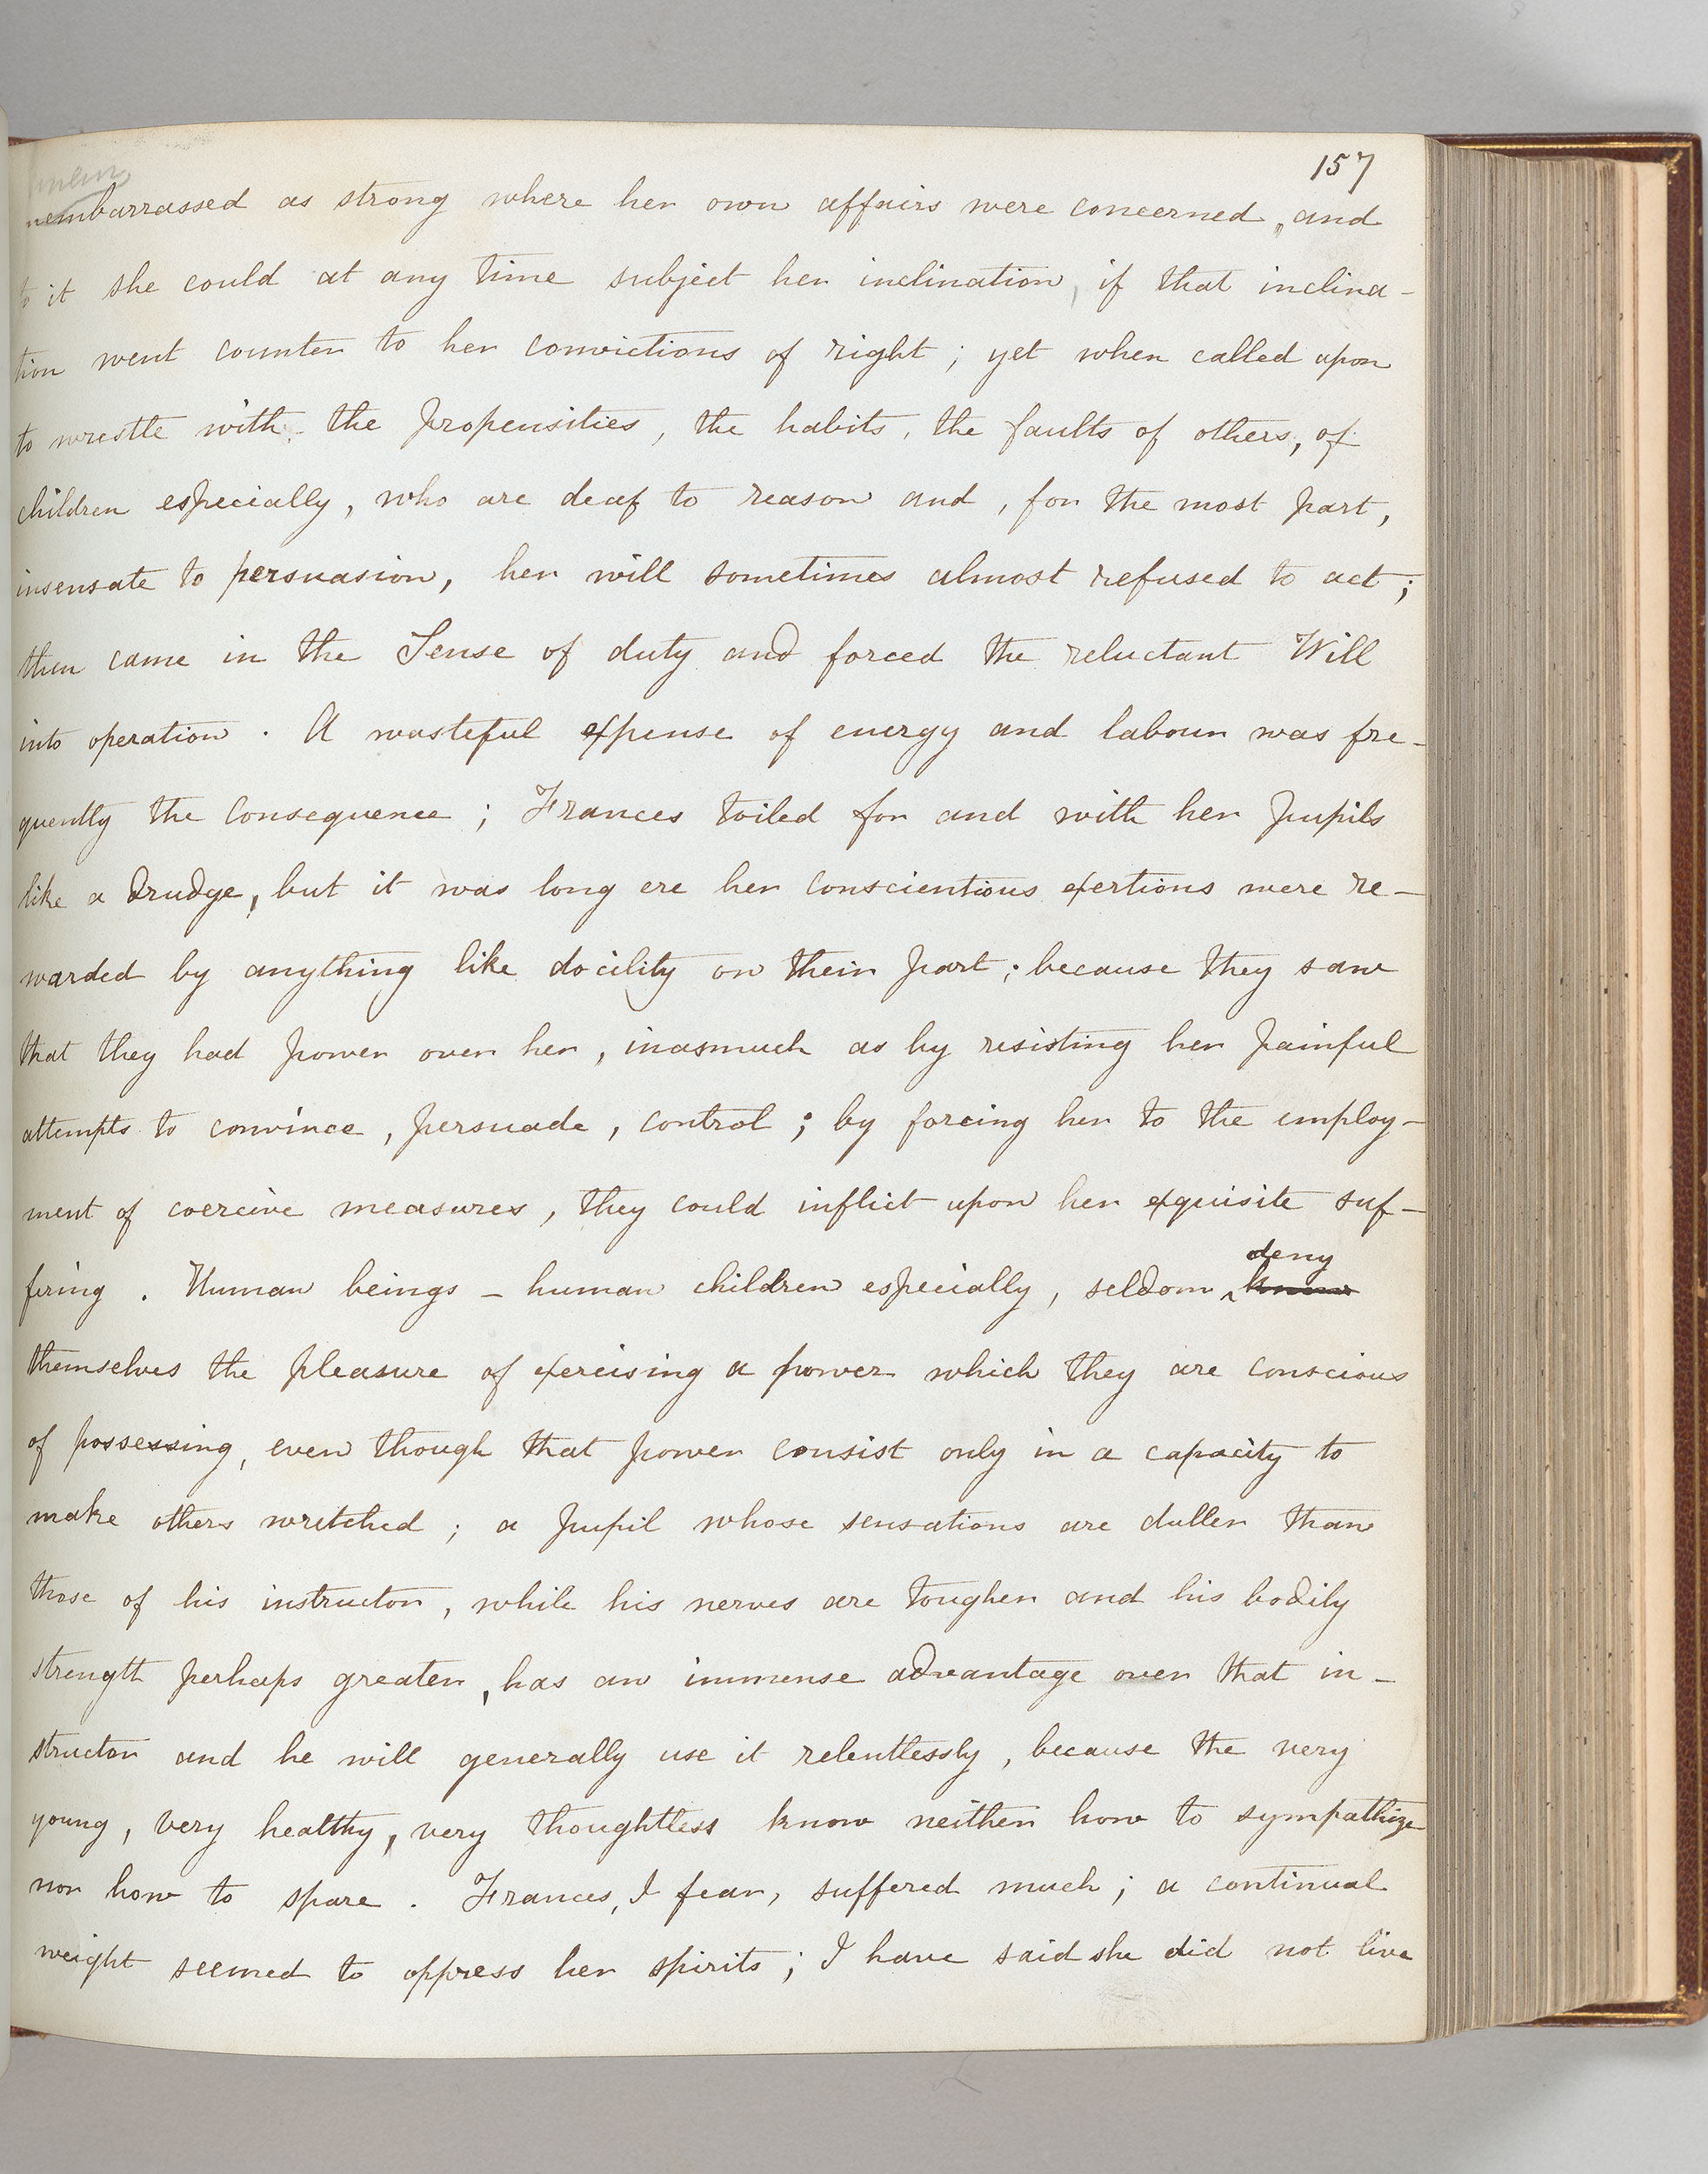 157
nembarrassed as strong where her own affairs were concerned, and
to it she could at any time subject her inclination, if that inclina-
tion went counter to her convictions of right; yet when called upon
to wrestle with the propensities, the habits, the faults of others, of
children especially, who are deaf to reason and, for the most part,
insensate to persuasion, her will sometimes almost refused to act;
then came in the Sense of duty and forced the reluctant Will
into operation. A wasteful expense of energy and labour was fre-
quently the consequence; Frances toiled for and with her pupils
like a drudge, but it was long ere her conscientious exertions were re-
warded by anything like docility on their part; because they saw
that they had power over her, inasmuch as by resisting her painful
attempts to convince, persuade, control; by forcing her to the employ-
ment of coercive measures, they could inflict upon her exquisite suf-
deny
fering. Human beings - human children especially, seldom
themselves the pleasure of exercising a power which they are conscious
of possessing, even though that power consist only in a capacity to
make others wretched; a pupil whose sensations are duller than
those of his instructor, while his nerves are tougher and his bodily
strength perhaps greater, has an immense advantage over that in-
structor and he will generally use it relentlessly, because the very
young, very healthy, very thoughtless know neither how to sympathize
nor how to spare. Frances, I fear, suffered much; a continual
weight seemed to oppress her spirits; I have said she did not live